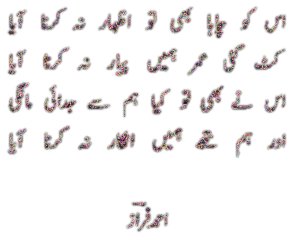 اس کو اظہار بھی تو کرنا نہ آیا
کٹ گئی عمر ہمیں پیار نہ کرنا آیا
اس نے بھی تو کیا ہم سے جدائی مانگی
اور ہم تھے ہمیں انکار نہ کرنا آیا
احمد فراز